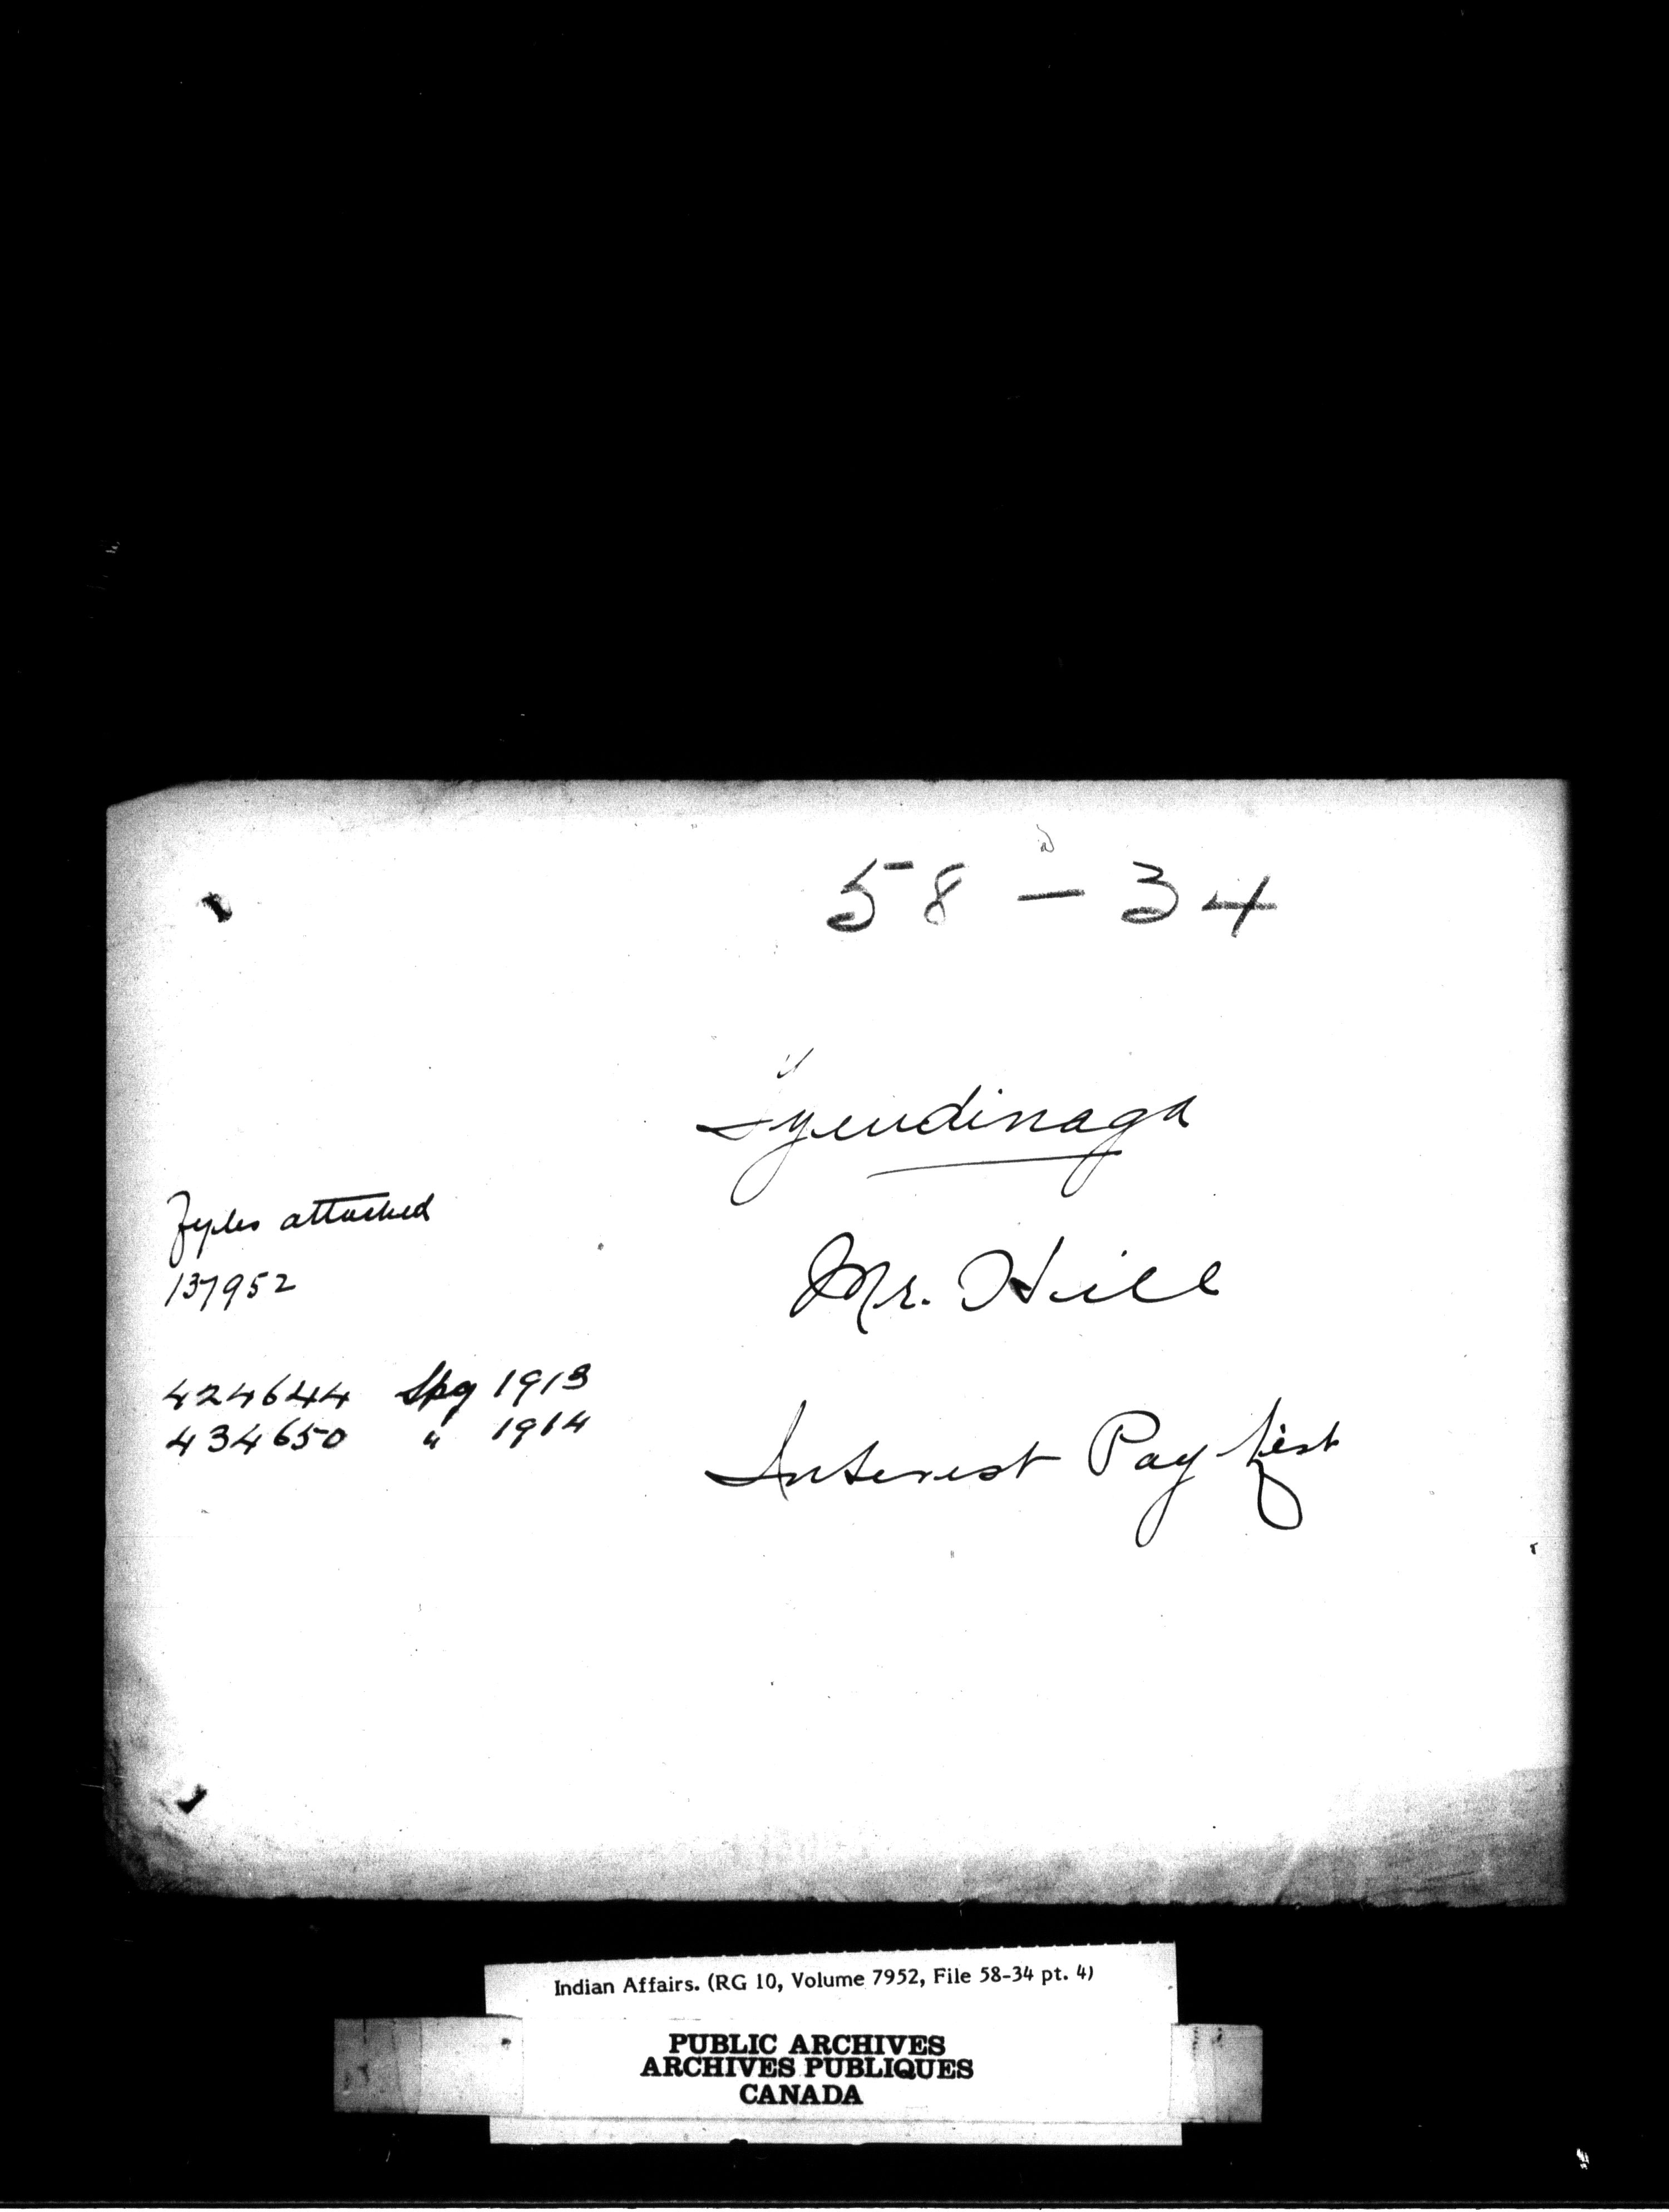 58 - 34
Tyendinaga
Mr. Hill
Interest Pay list
Fyles attached
137952
424644 Spg 1913
434650 " 1914
Indian Affairs. (RG 10, Volume 7952, File 58-34 pt. 4)
PUBLIC ARCHIVES
ARCHIVES PUBLIQUES
CANADA